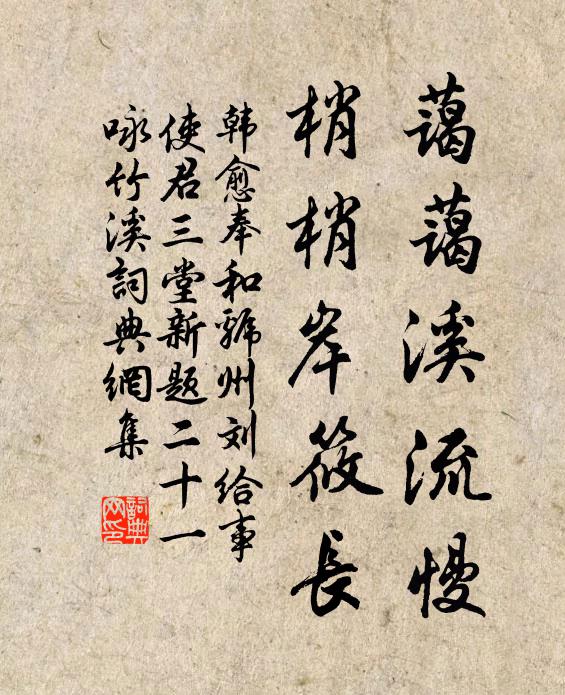 藹藹溪流慢
梢梢岸筱長
韓愈奉和虢州刘给事
使君三堂新题二十一
咏竹溪詞典網集
詞典
网印